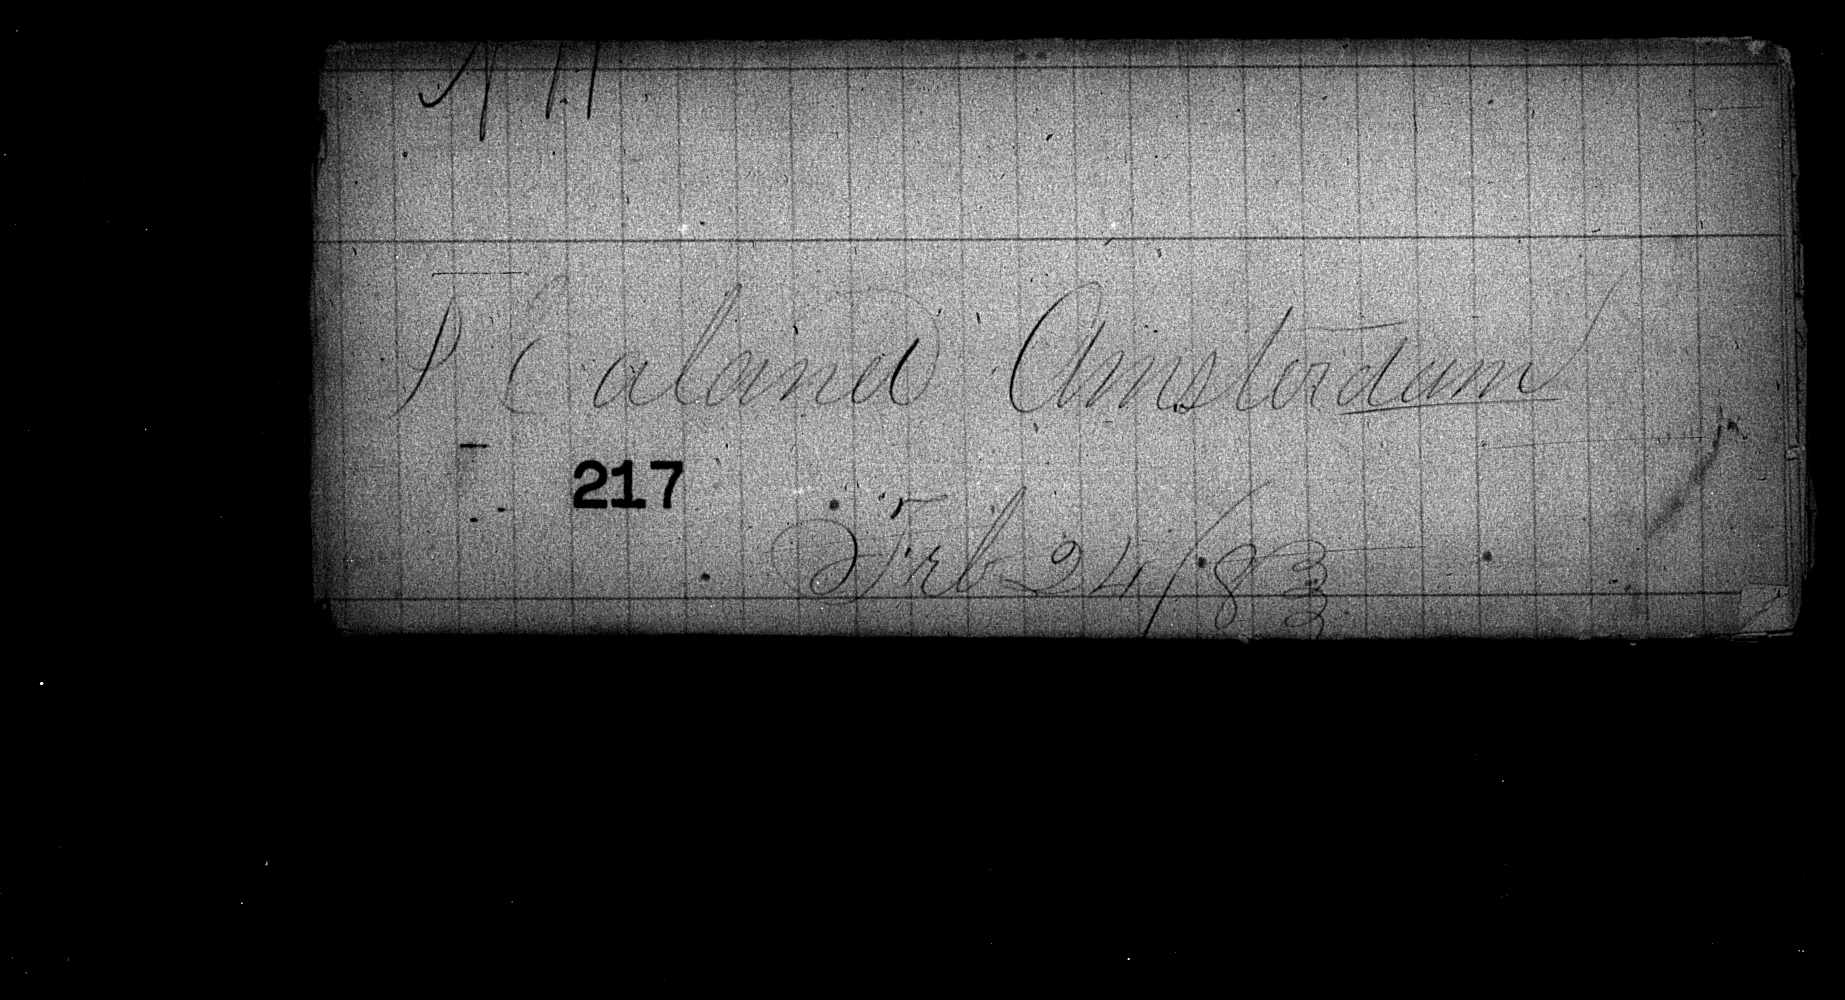 P Caland Amsterdam
217
Feb 24/83